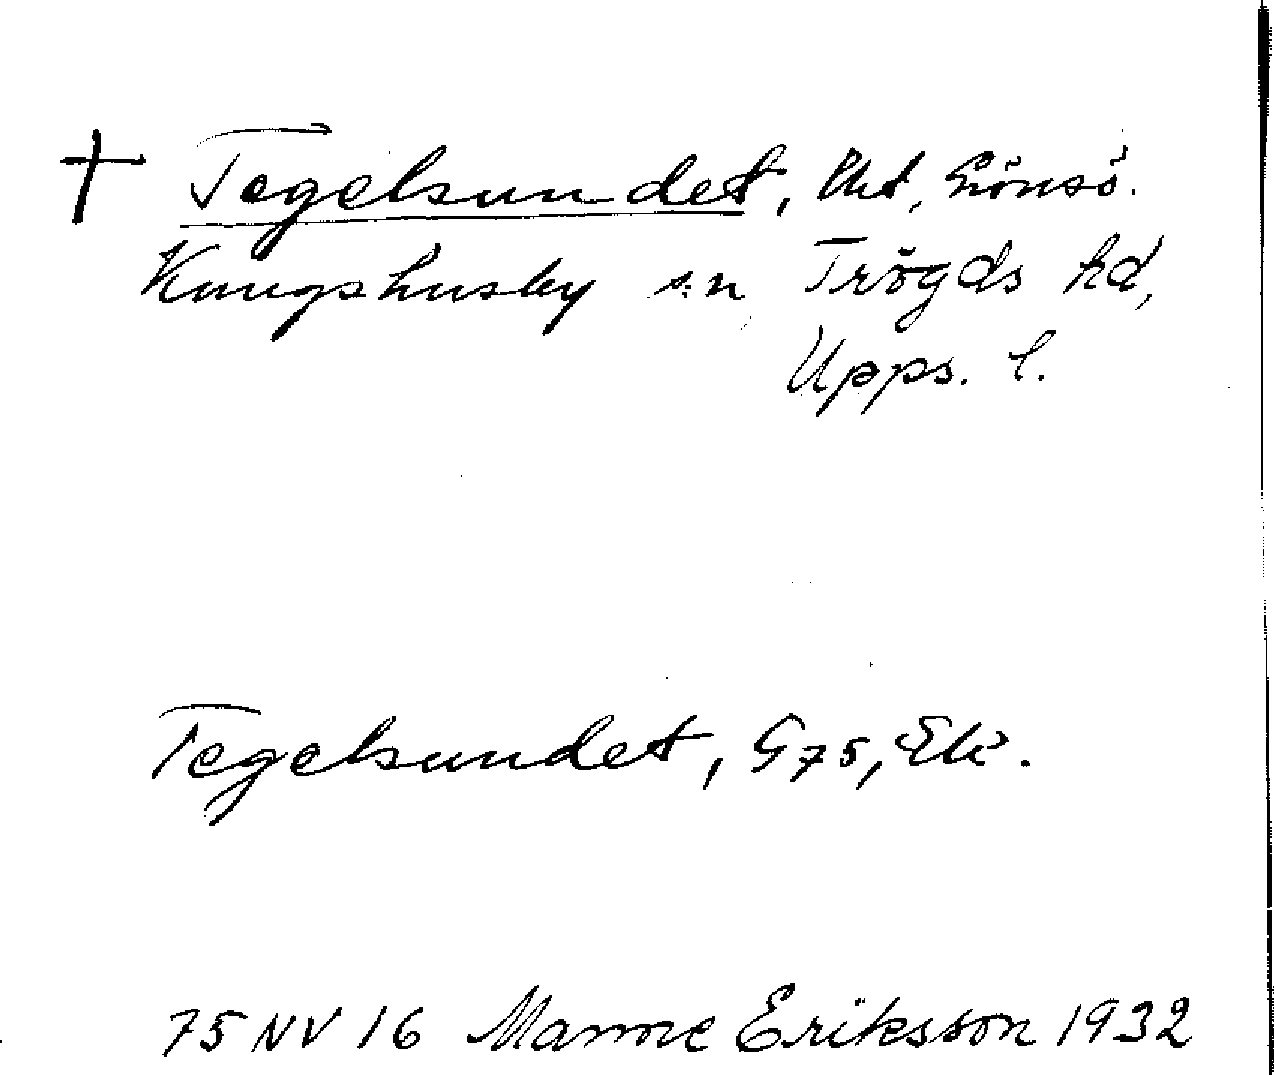 † Tegelsundet, Utt, Grönsö.
Kungshusby sn, Trögds hd,
Upps. l.
Tegelsundet, G 75, Ek.
75 NV 16 Manne Eriksson 1932